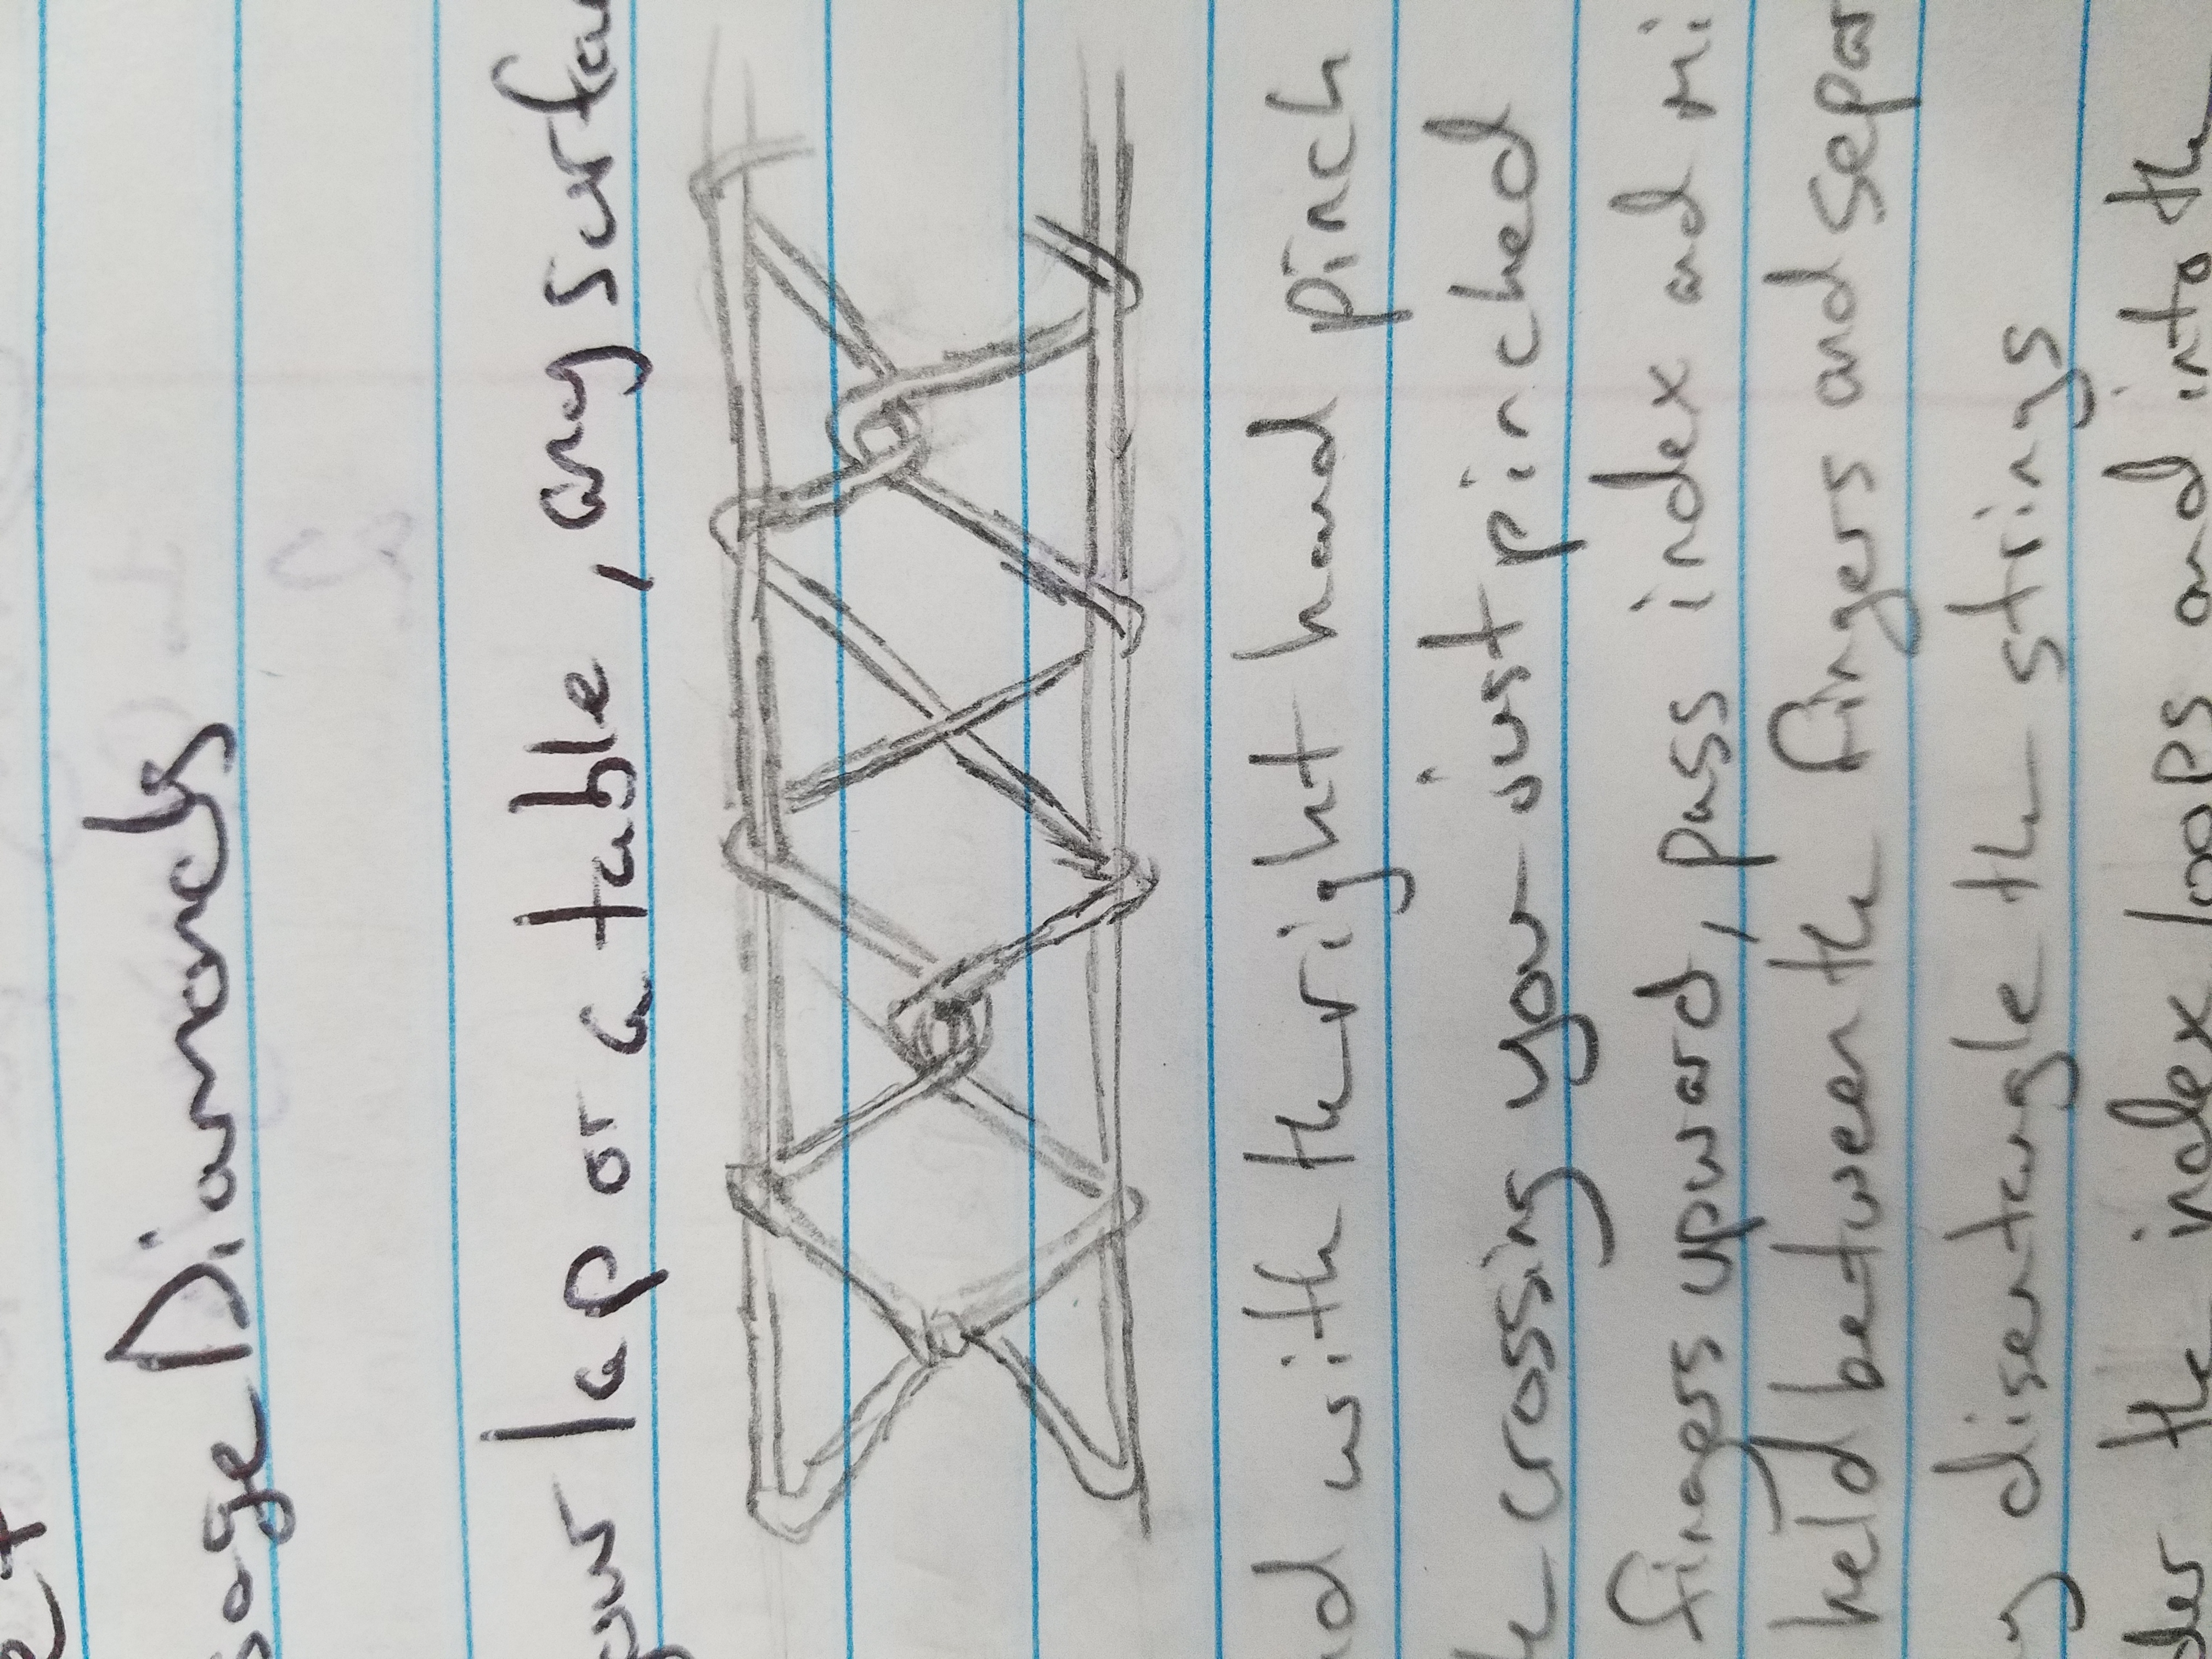 et
sage Diamonds
your lap or a table, any surfac
nd with the right hand pinch
crossing you just pinched
fingers upward, pass index and mi
held between the fingers and separ
y disentangle the strings
der the index loops and into the